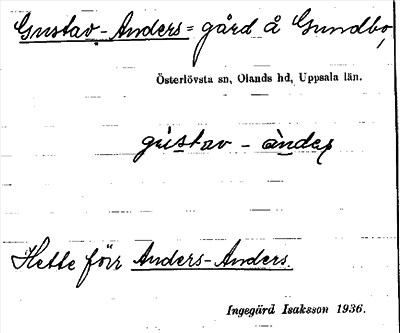 Gustav-Anders= gård å Gundbo,
Österlövsta sn, Olands hd, Uppsala län.
gùstav - àndeʂ
Hette förr Anders-Anders.
Ingegärd Isaksson 1936.